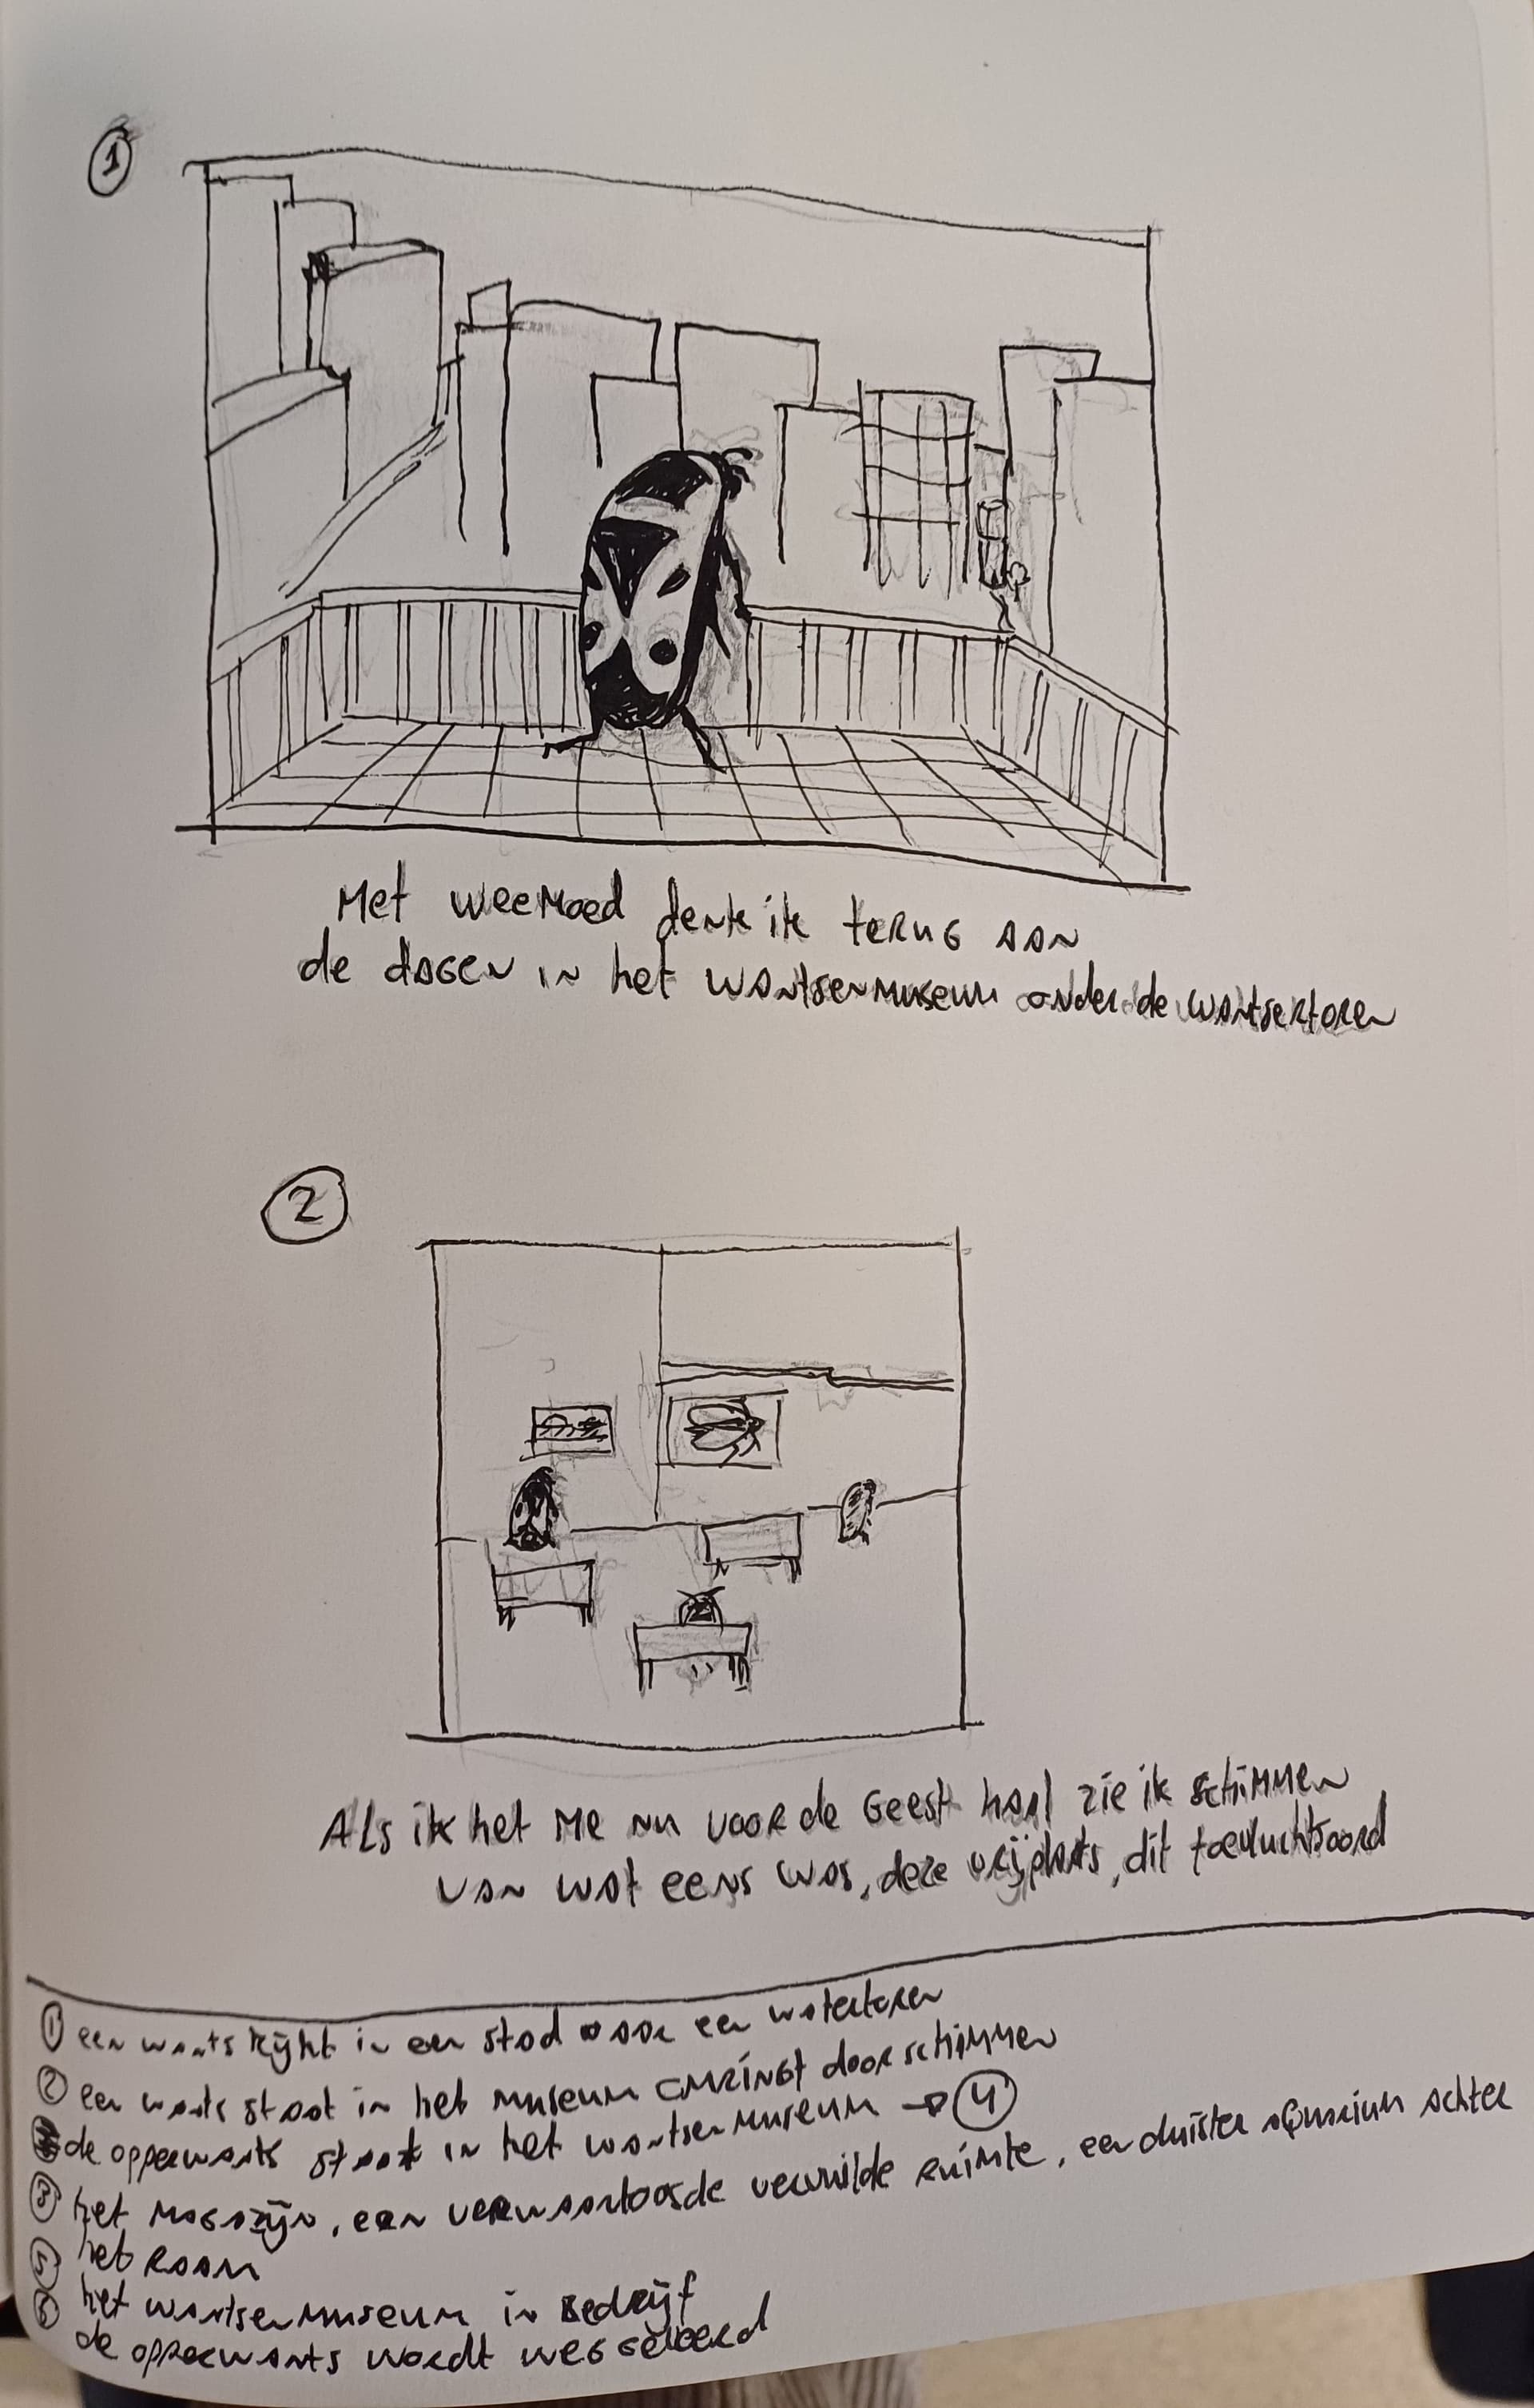 1
Met weemoed denk ik terug aan
de dagen in het wantsenmuseum onder de wantsertoren
2
Als ik het me nu voor de geest haal zie ik schimmen
van wat eens was, deze vrijplaats, dit toevluchtsoord
1 een wants kijkt in een stad naar een watertoren
2 een wants staat in het museum omringt door schimmen
de opperwants staat in het wantsenmuseum → 4
3 het magazijn, een verwaarloosde verwilde ruimte, een duister aquarium achter
5 het raam
6 het wantsenmuseum in bedrijf
de opperwants wordt weggeleerd